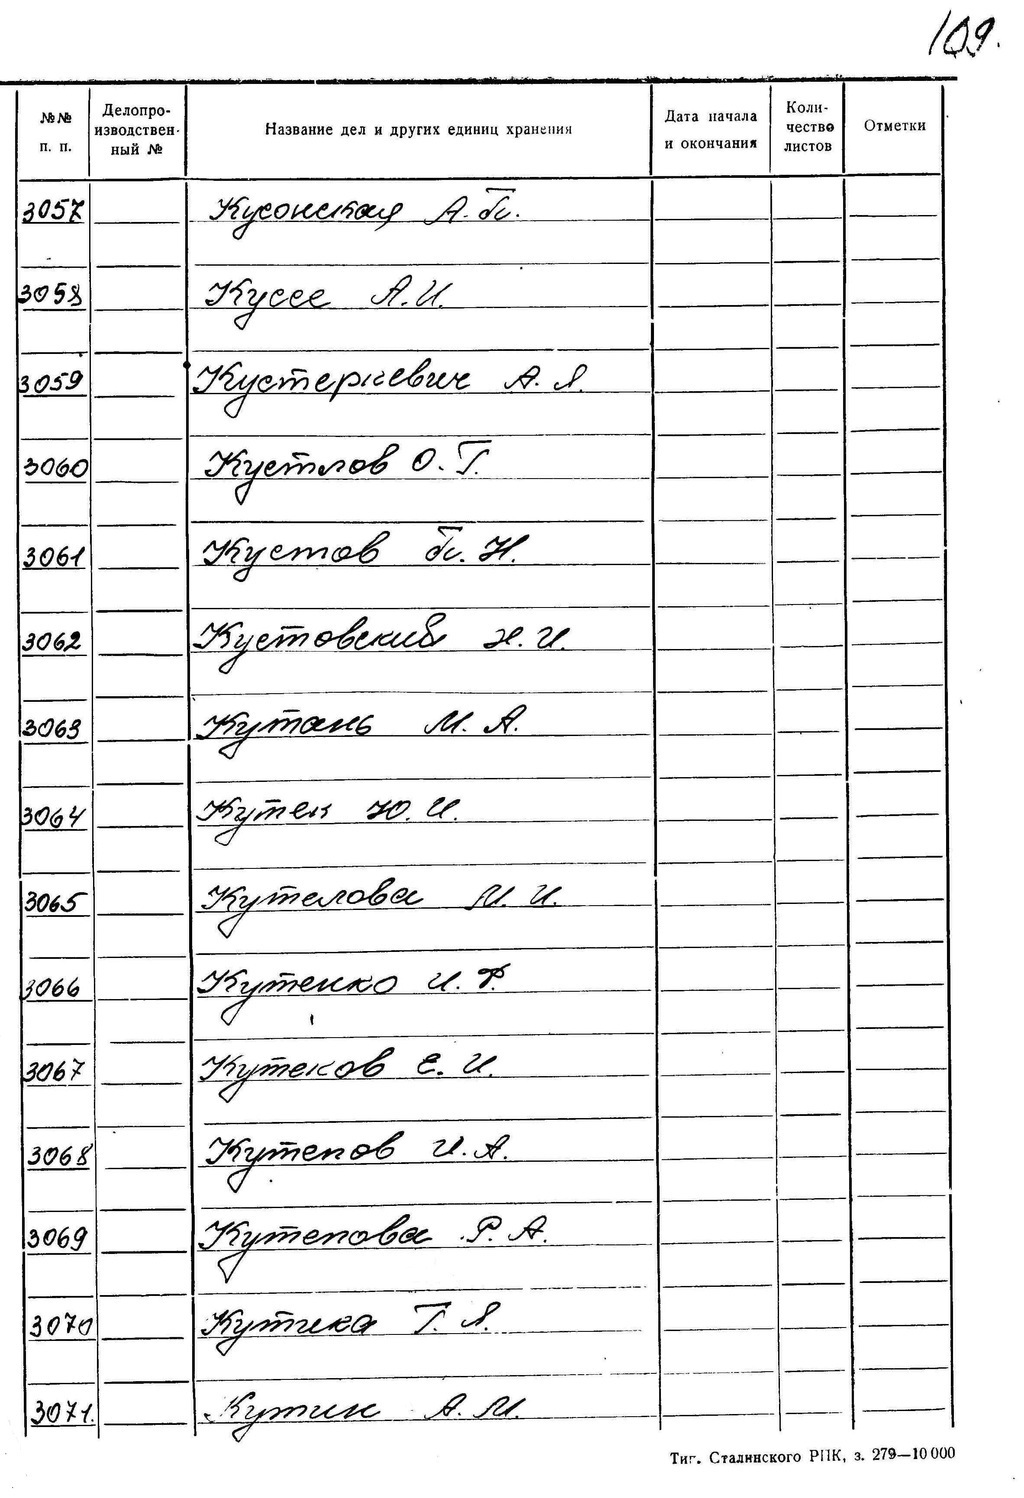 109.
№№ п. п. Делопро-изводствен-ный № Название дел и других единиц хранения Дата начала и окончания Коли-чество листов Отметки
3057 Кусонская А.
3058 Куссе А.И.
3059 Кустеркевич А. Я.
3060 Кустлов О. Г.
3061 Кустов Н.
3062 Кустовский Н. И.
3063 Кутань М. А.
3064 Кутек Ю. И.
3065 Кутелова М. И.
3066 Кутенко И. Ф.
3067 Кутеков Е. И.
3068 Кутепов И. А.
3069 Кутепова Р. А.
3070 Кутика Г. Я.
3071. Кутик А. М.
Тип. Сталинского РПК, з. 279—10 000